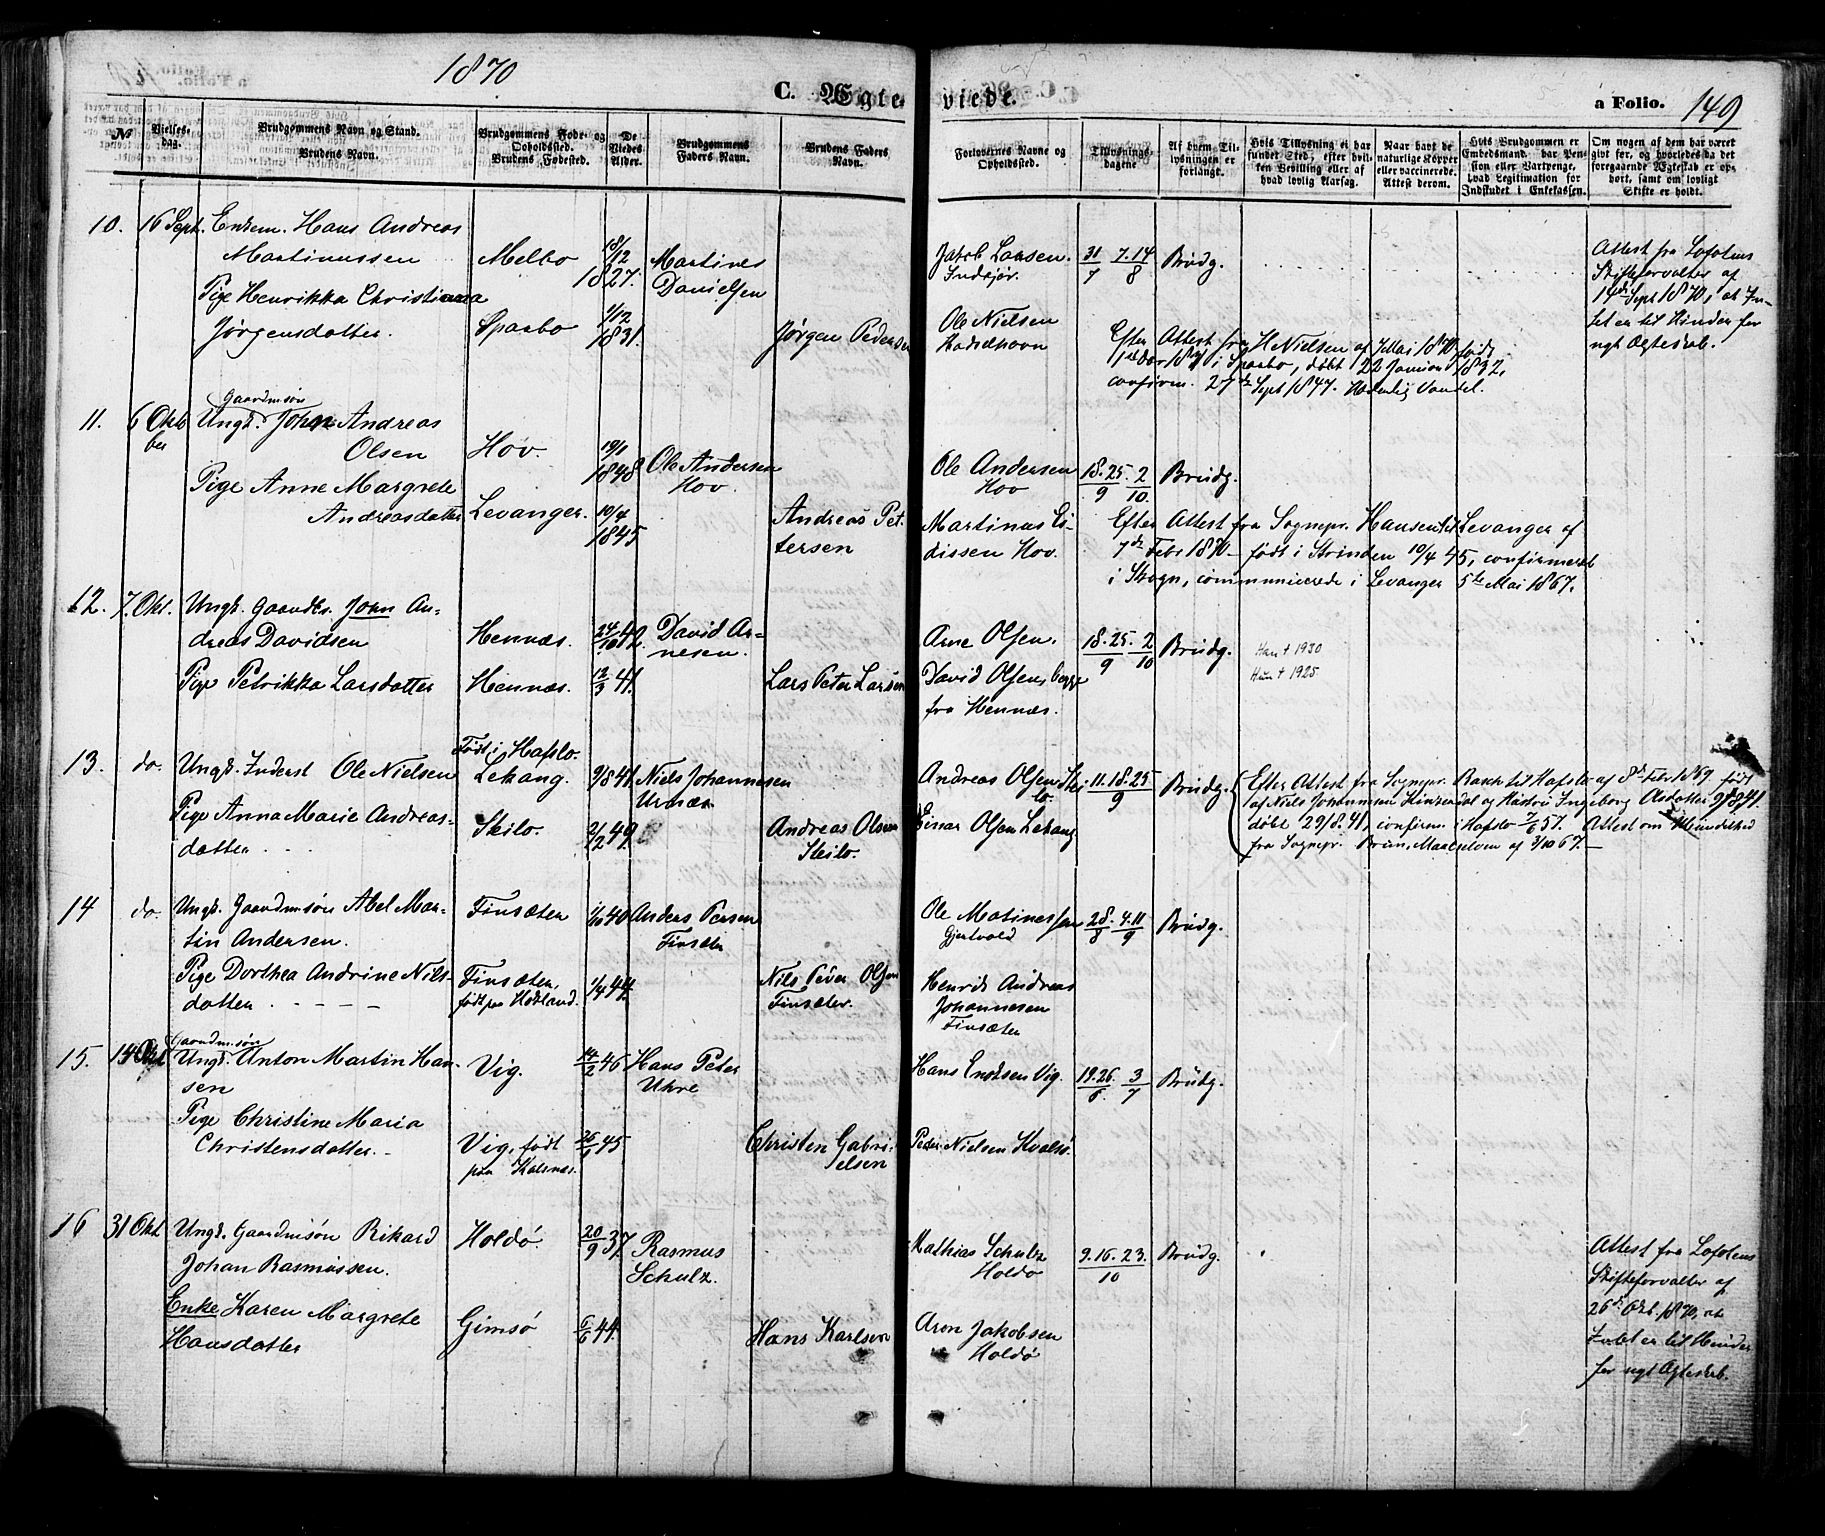 1870
C. Ægte-
viede.
a Folio. 149
№
Vielses-
dag.
Brudgommens Navn og Stand.
Brudens Navn.
Brudgommens Føde- og
Opholdssted.
Brudens Fødested.
De
Viedes
Alder.
Brudgommens
Faders Navn.
Brudens Faders
Navn.
Forlovernes Navne og
Opholdssted.
Tillysnings-
dagene
Af hvem Til-
lysningen er
forlangt.
Hvis Tillysning ei har
fundet Sted, efter hvil-
ken Bevilling eller af
hvad lovlig Aarsag.
Naar havt de
naturlige Kopper
eller vaccinerede.
Attest derom.
Hvis Brudgommen er
Embedsmand, har Pen-
sion eller Vartpenge,
hvad Legitimation for
Indskudet i Enkekassen.
Om nogen af dem har været
givt før, og hvorledes da det
foregaaende Ægteskab er op-
hørt, samt om lovligt
Skifte er holdt.
10. 16 Sept. Enkem. Hans Andreas
Martinussen
Melbo
18/12
1827.
Martines
Danielsen
Jakob Larsen
Indsjör.
31/7 7.14/8
Brudg.
Attest fra Lofotens
Skifteforvalter af
14de Sept 1870, at In-
tet er til Hinder for
nyt Ægteskab.
Pige Henrikka Christianna
Jörgensdatter.
Sparbo
1/12
1831.
Jørgen Peders
Ole Nielsen
Hadselhavn
Efter Attest fra H Nielsen af 7 Mai 1870, født
i Sparbo, døbt 22 Januar 1832,
confirm. 27de Sept 1847. Hæderlig Vandel.
11. 6 Okto
ber
Gaardmsøn
Ungk. Johan Andreas
Olsen
Hov.
19/1
1848
Ole Andersen
Hov.
Ole Andersen
Hov
18.25/9 2/10
Brudg.
Pige Anne Margrete
Andreasdatter
Levanger.
10/4
1845
Andreas Pet-
tersen
Martinus Ei-
dissen Hov.
Efter Attest fra Sognepr. Hansen til Levanger af
7de Febr 1870 – født i Strinden 10/4 45, confirmeret
i Skogn, communicerede i Levanger 5te Mai 1867.
12. 7. Okt.
Ungk. Gaardbr. John An-
dreas Davidsen
Hennæs.
24/10 42.
David Ar-
nesen.
Arne Olsen.
18.25/9 2/10
Brudg.
Han † 1930
Hun † 1925
Pige Petrikka Larsdatter
Hennæs.
12/3 41.
Lars Peter Larsen
David Olsen begge
fra Hennæs.
13. do.
Ungk. Inderst Ole Nielsen
Født i Hafslo.
Lekang.
9/8 41.
Niels Johannesen
Urnæs
Andreas Olsen Skei-
lo.
11.18.25/9
Brudg.
Efter Attest fra Sognepr. Rasch til Hafslo af 8de Febr 1869 født
af Niels Johannesen Kinzerdal og Hustru Ingeborg Olsdatter 9/8 41.
døbt 29/8.41, confirm. i Hafslo 7/6 57. Attest om
fra Sognepr. Brun, Maalselven af 3/10 67.–
Pige Anna Marie Andreas-
datter
Skilo.
2/2 49
Andreas Olsen
Skilo.
Einar Olsen Lekang
14 do.
Ungk. Gaardmsøn Abel Mar-
tin Andersen.
Finsæter
1/10 40
Anders Persen
Finsæter
Ole Matinessen
Gjertvold
28/8 4.11/9
Brudg.
Pige Dorthea Andrine Nils-
datter
Finsæter,
født paa Hadland.
1/4 44.
Nils Peder Olsen
Finsæter.
Henrik Andreas
Johannesen
Finsæter
15. 14 Okt
Gaardmsøn
Ungk. Anton Martin Han-
sen
Vig.
14/2 46
Hans Peter
Uhre
Hans Endresen Vig.
19.26/6 3/7
Brudg.
Pige Christine Maria
Christensdatter.–
Vig, født
paa Kalsnæs.
45
Christen Gabri-
elsen
Peder Nielsen Kvalsö.
16 31 Okt
Ungk. Gaardmsøn Rikard
Johan Rasmussen.
Holdö.
20/9 37.
Rasmus
Schulz.
Mathias Schulz
Holdö
9.16.23./10
Brudg.
Attest fra Lofotens
Skifteforvalter af
26de Okt. 1870, at
Intet er til Hinder
for nyt Ægteskab.
Enke Karen Margrete
Hansdatter
Gimsö
6/6 44.
Hans Karlsen
Aron Jakobsen
Holdö